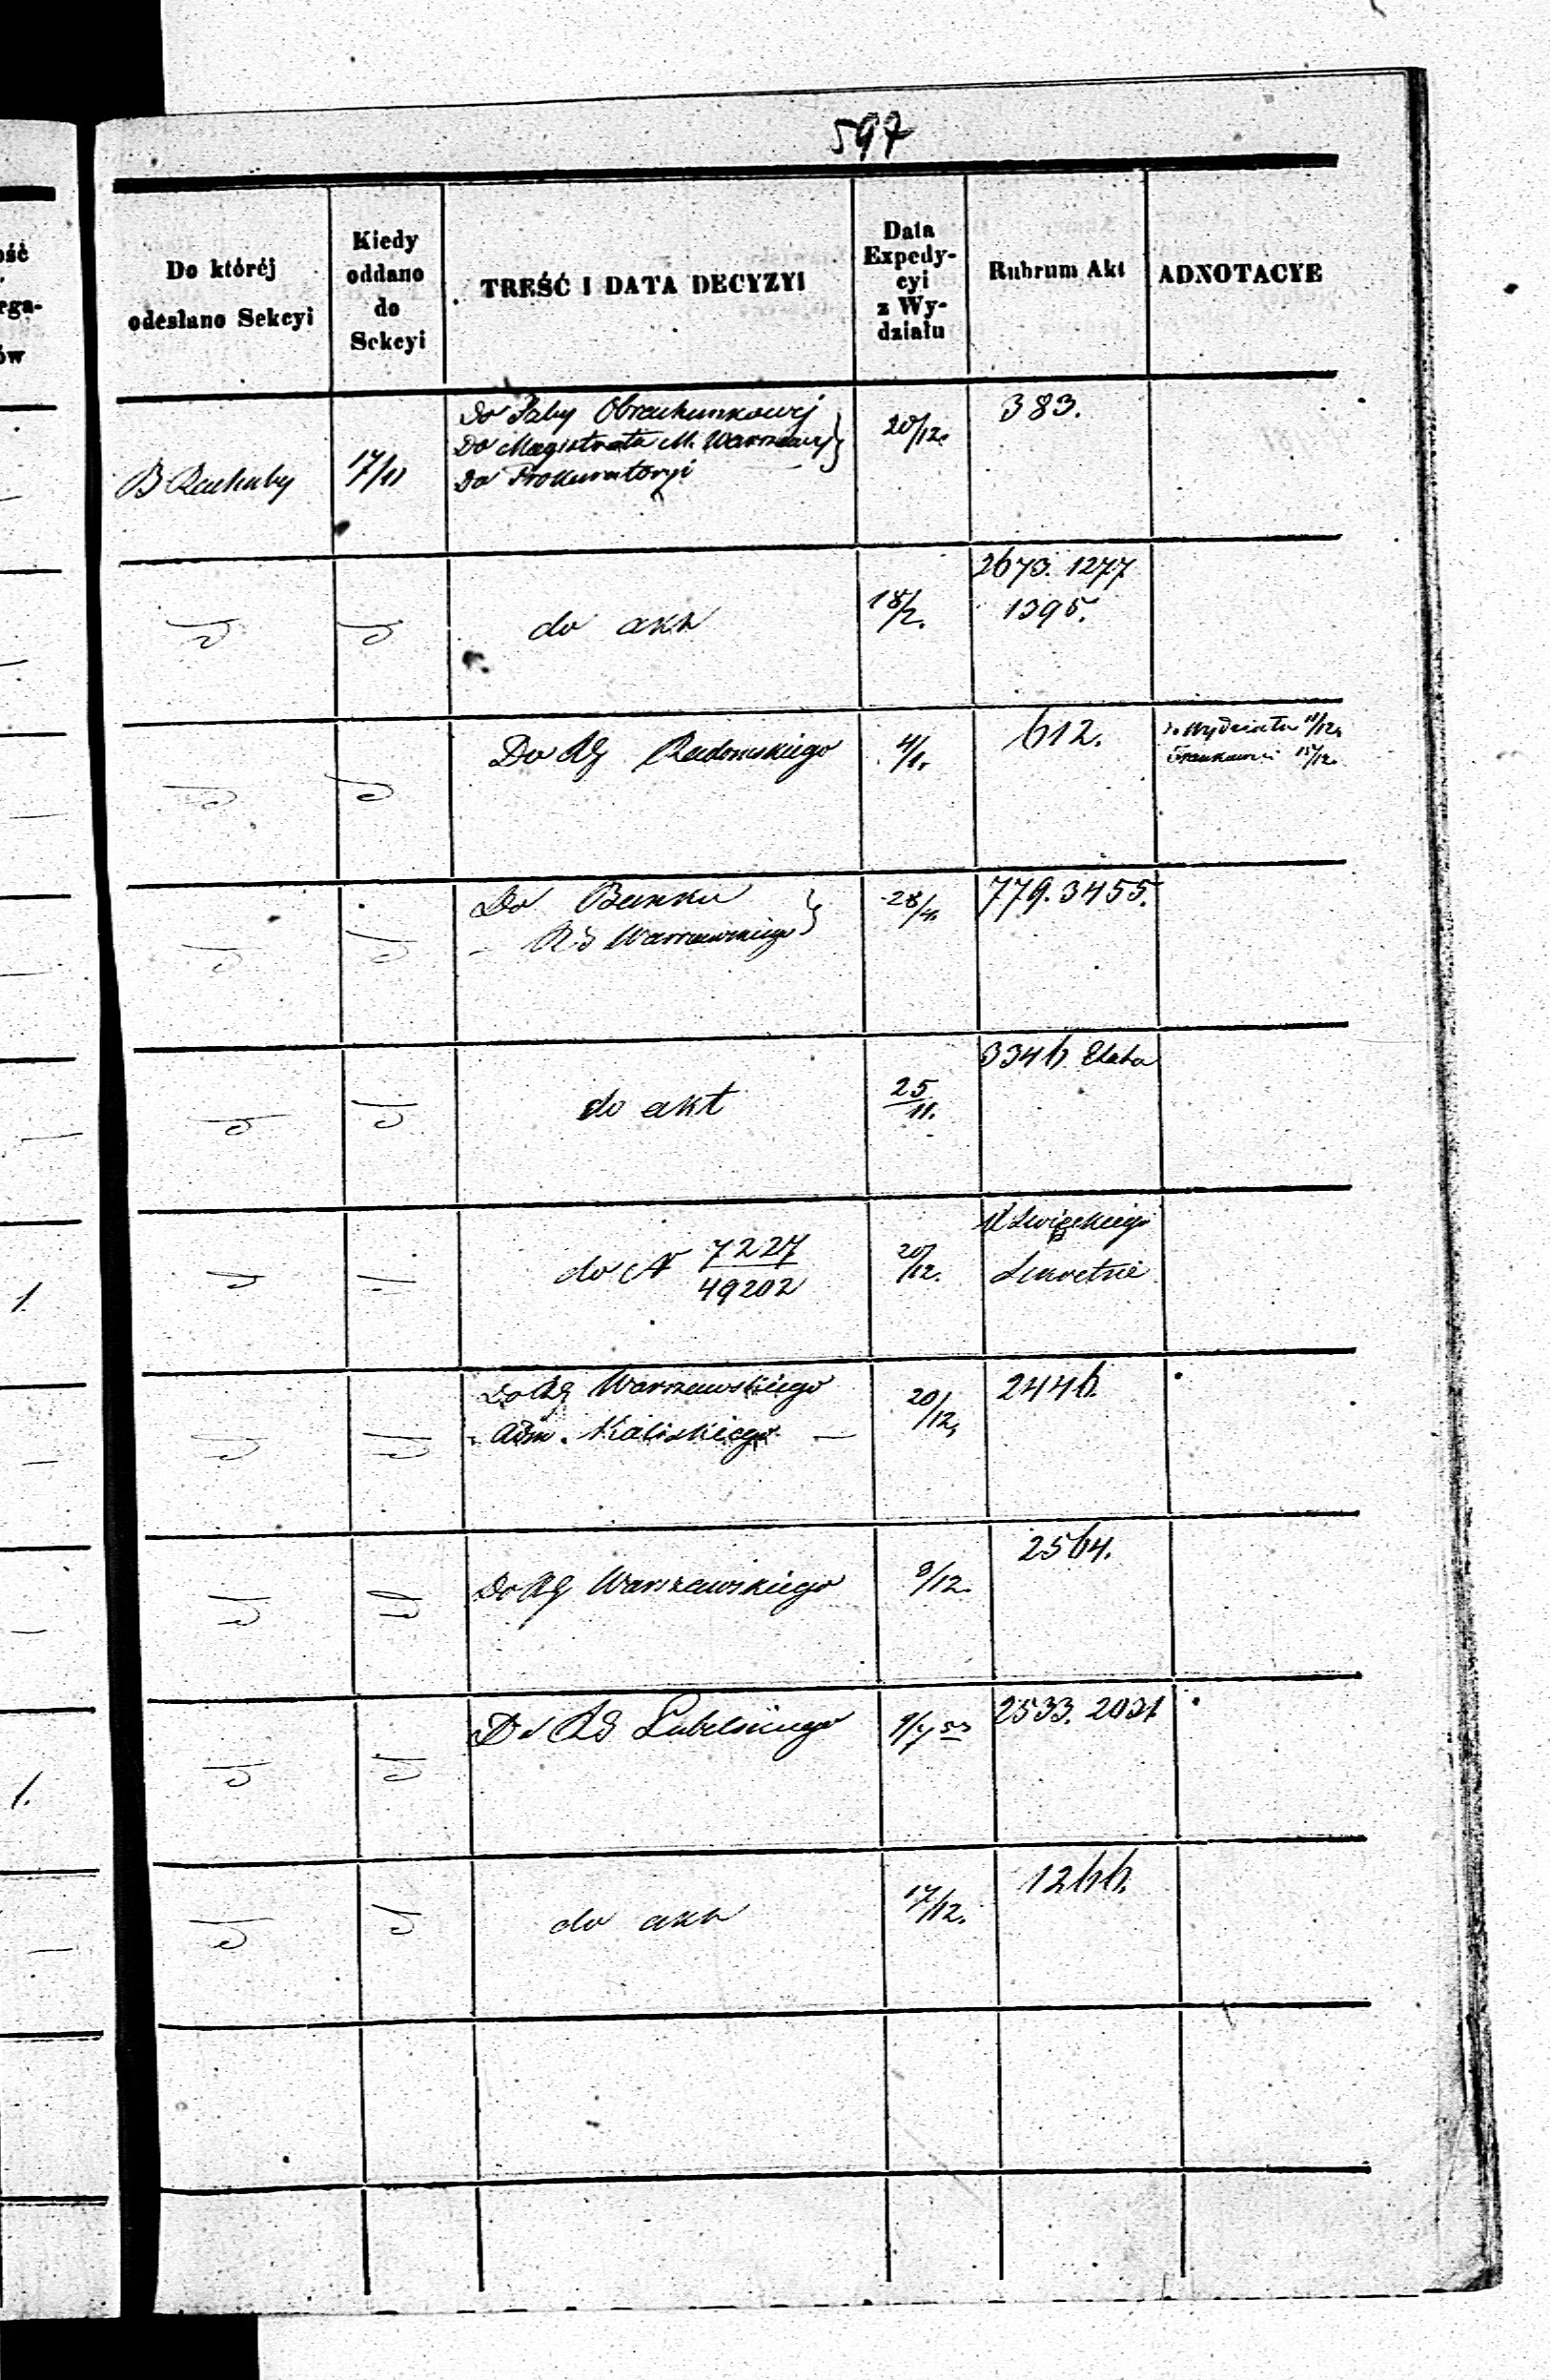 597
Do któréj
odesłano Sekcyi
Kiedy
oddano
do
Sekcyi
TREŚĆ I DATA DECYZYI
Data
Expedy-
cyi
z Wy-
działu
Rubrum Akt
ADNOTACYE
B Rachuby
17/11
Do Izby Obrachunkowej
Do Magistratu M. Warszawy
Do Prokuratoryi
20/12.
383.
do akt
18/2.
2673. 1277
1395.
Do RG Radomskiego
4/1.
612.
do Wydziału 11/12.
15/12.
Do Banku
- RG Warszawskiego
28/4.
779. 3455.
do akt
25/11.
3346 Etata
do N 7227/49202
20/12.
Sekretne
Do RG Warszawskiego
Adm. Kaliskiego
20/12.
2446.
Do RG Warszawskiego
9/12.
2564.
Do RG Lubelskiego
9/7 53
2533. 2031
do akt
17/12.
1266.
ość
rga-
ów
1.
1.